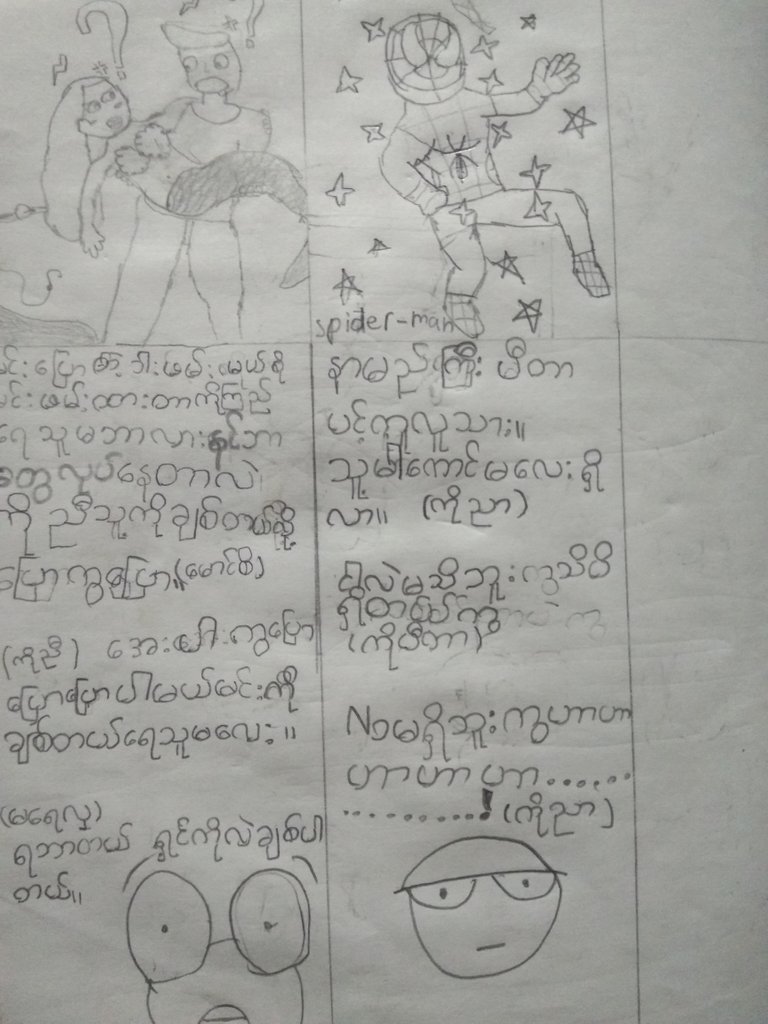 င်းပြောတဲ့ ဒါးဖမ်းမယ်ဆို
င်းဖမ်းထားတာကိုကြည့်
ရေသူမဘာလား
တွေလုပ်နေတာလဲ
ကို ညီသူ့ကိုချစ်တယ်လို့
ပြောကွပြော။(မောင်စိ)
(ကိုညီ) အေးပါးကွပြော
ပြောပြောပါမယ်မင်းကို
ချစ်တယ်ရေသူမလေး။
(မရေလှ)
ရှင်ကိုလဲချစ်ပါ
တယ်။
spider-man
နာမည်ကြီး ပီတာ
ပင့်ကူလူသား။
သူမှာကောင်မလေးရှိ
လား။ (ကိုညာ)
ငါလဲမသိဘူးကွသိပိ
ရှိတယ်ကွ
(ကိုပီတာ)
Noမရှိဘူးကွဟာဟာ
ဟာဟာဟာ......
..........! (ကိုညာ)